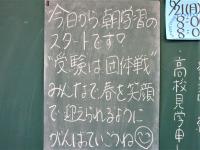 今日から朝学習の
スタートです!
"受験は団体戦"
みんなで春を笑顔
で迎えられるように
がんばていこうね
9/1(月)
高校見学申